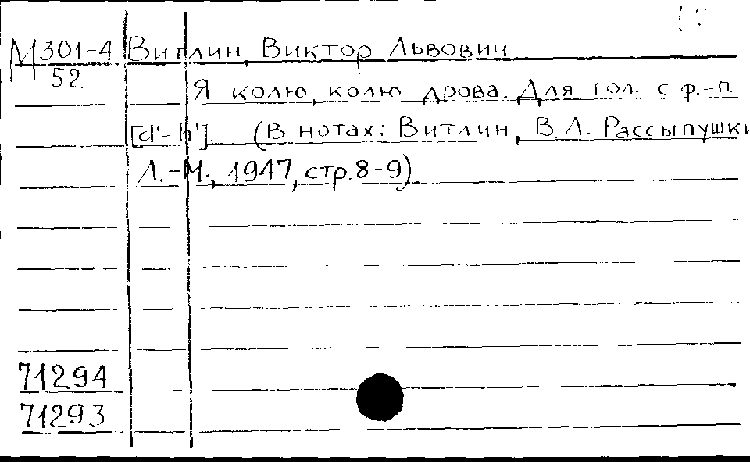 М 301-4 Витлин, Виктор Львович
52
Я колю, колю дрова. Для гол. с ф.-п.
[d'-h'] (В нотах: Витлин, В.Л. Рассыпушки
Л.-М., 1947, стр.8-9)
71294
71293